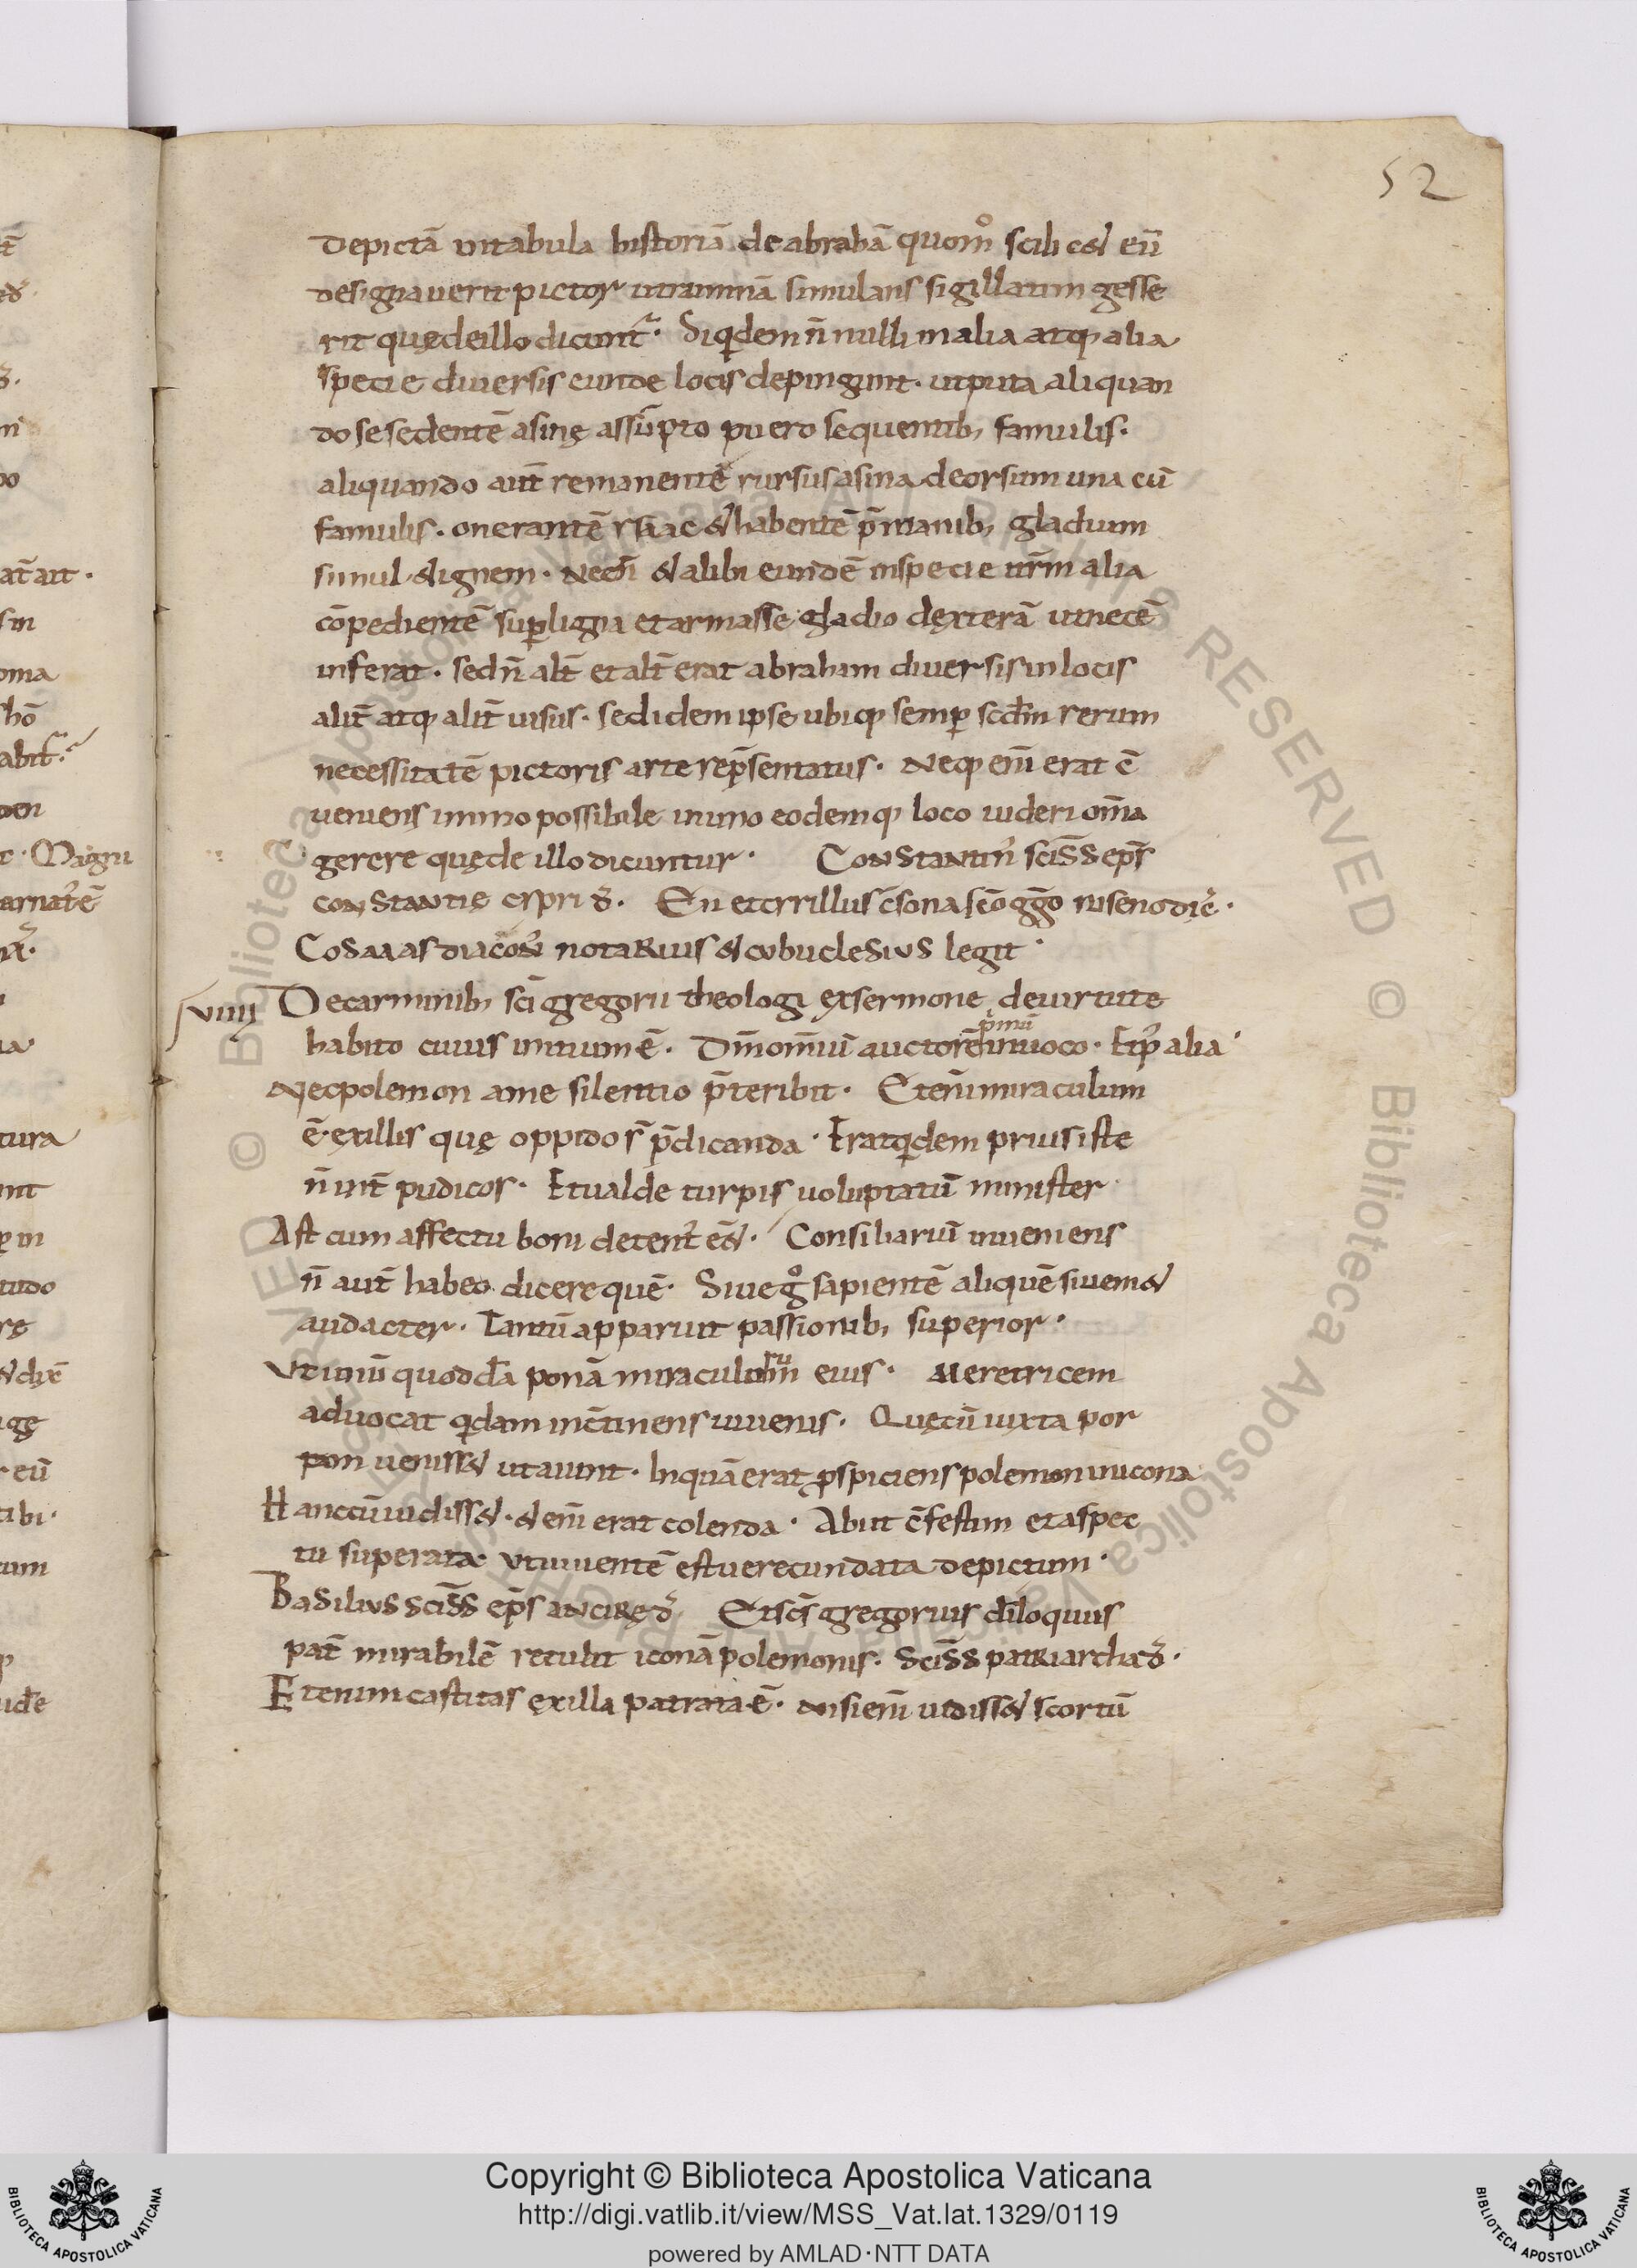 52
depictā in tabula historiā de abrahā quom̊ scilic& eū
designauerit pictor utrumnā simulans sigillatim gesse
rit quę de illo dicunt᷑. Siqdem n̄ nulli in alia atq; alia
specie diuersis eunde locis depingunt. utputa aliquan
do se sedentē asinę assūpto puero sequentib; famulis.
aliquando aut̄ remanentē rursus asina deorsum una cū
famulis. onerantē ysaac & habentē p̄ manib; gladium
simul & ignem. Necn̄ & alibi eundē in specie alia
cōpedientē sup ligna et armasse gladio dexterā ut necē
inferat. sed n̄ alt̄ et alt̄ erat abraham diuersis in locis
alit̄ atq; alit̄ uisus. sed idem ipse ubiq; semp scd̄m rerum
necessitatē pictoris arte rep̄sentatus. Neq; eni erat c̄
ueniens immo possibile in uno eodemq; loco uideri om̄a
gerere quę de illo dicuntur. Constantin᾿ sciss eps̄
constantię cypri d᷑. En et cyrillus c̄sona scō ggō nisenodic̄.
Cosmas diacon᾿ notarius & cubuclesius legit.
xviiij De carminib; sc̄i gregorii theologi ex sermone de uirtute
habito cuius initium ē. Dm̄ om̄iū auctorē p̄mū inuoco. Et p᾿ alia
Nec polemon a me silentio p̄teribit. Eteni miraculum
ē. ex illis quę oppido s̄ p̄dicanda. Erat qdem prius iste
n̄ int̄ pudicos. Et ualde turpis uoluptatū minister
Ast cum affectu boni detent᾿ eē&. Consiliariū inueniens
n̄ aut̄ habeo dicere quē. Siue g̊ sapientē aliquē siue m&
audacter. Tantū apparuit passionib; superior.
Ut unū quoddā ponā miraculorum eius. Meretricem
aduocat qdam inc̄tinens iuuenis. Quę cū iuxta por
tam ueniss& ut aiunt. In quā erat pspiciens polemon in icona
Hanc cū uidiss&. & eni erat colenda. Abiit c̄festim et aspec
tu superata ut uiuentē est uerecundata depictum.
Basilius sciss eps̄ ancirę d᷑. Et scs̄ gregorius diloquus
pat̄ mirabilē retulit iconā polemonis. Sciss patriarcha d᷑.
Etenim castitas ex illa patrata ē. Nisi eni uidiss& scortū
Copyright © Biblioteca Apostolica Vaticana
http://digi.vatlib.it/view/MSS_Vat.lat.1329/0119
powered by AMLAD·NTT DATA